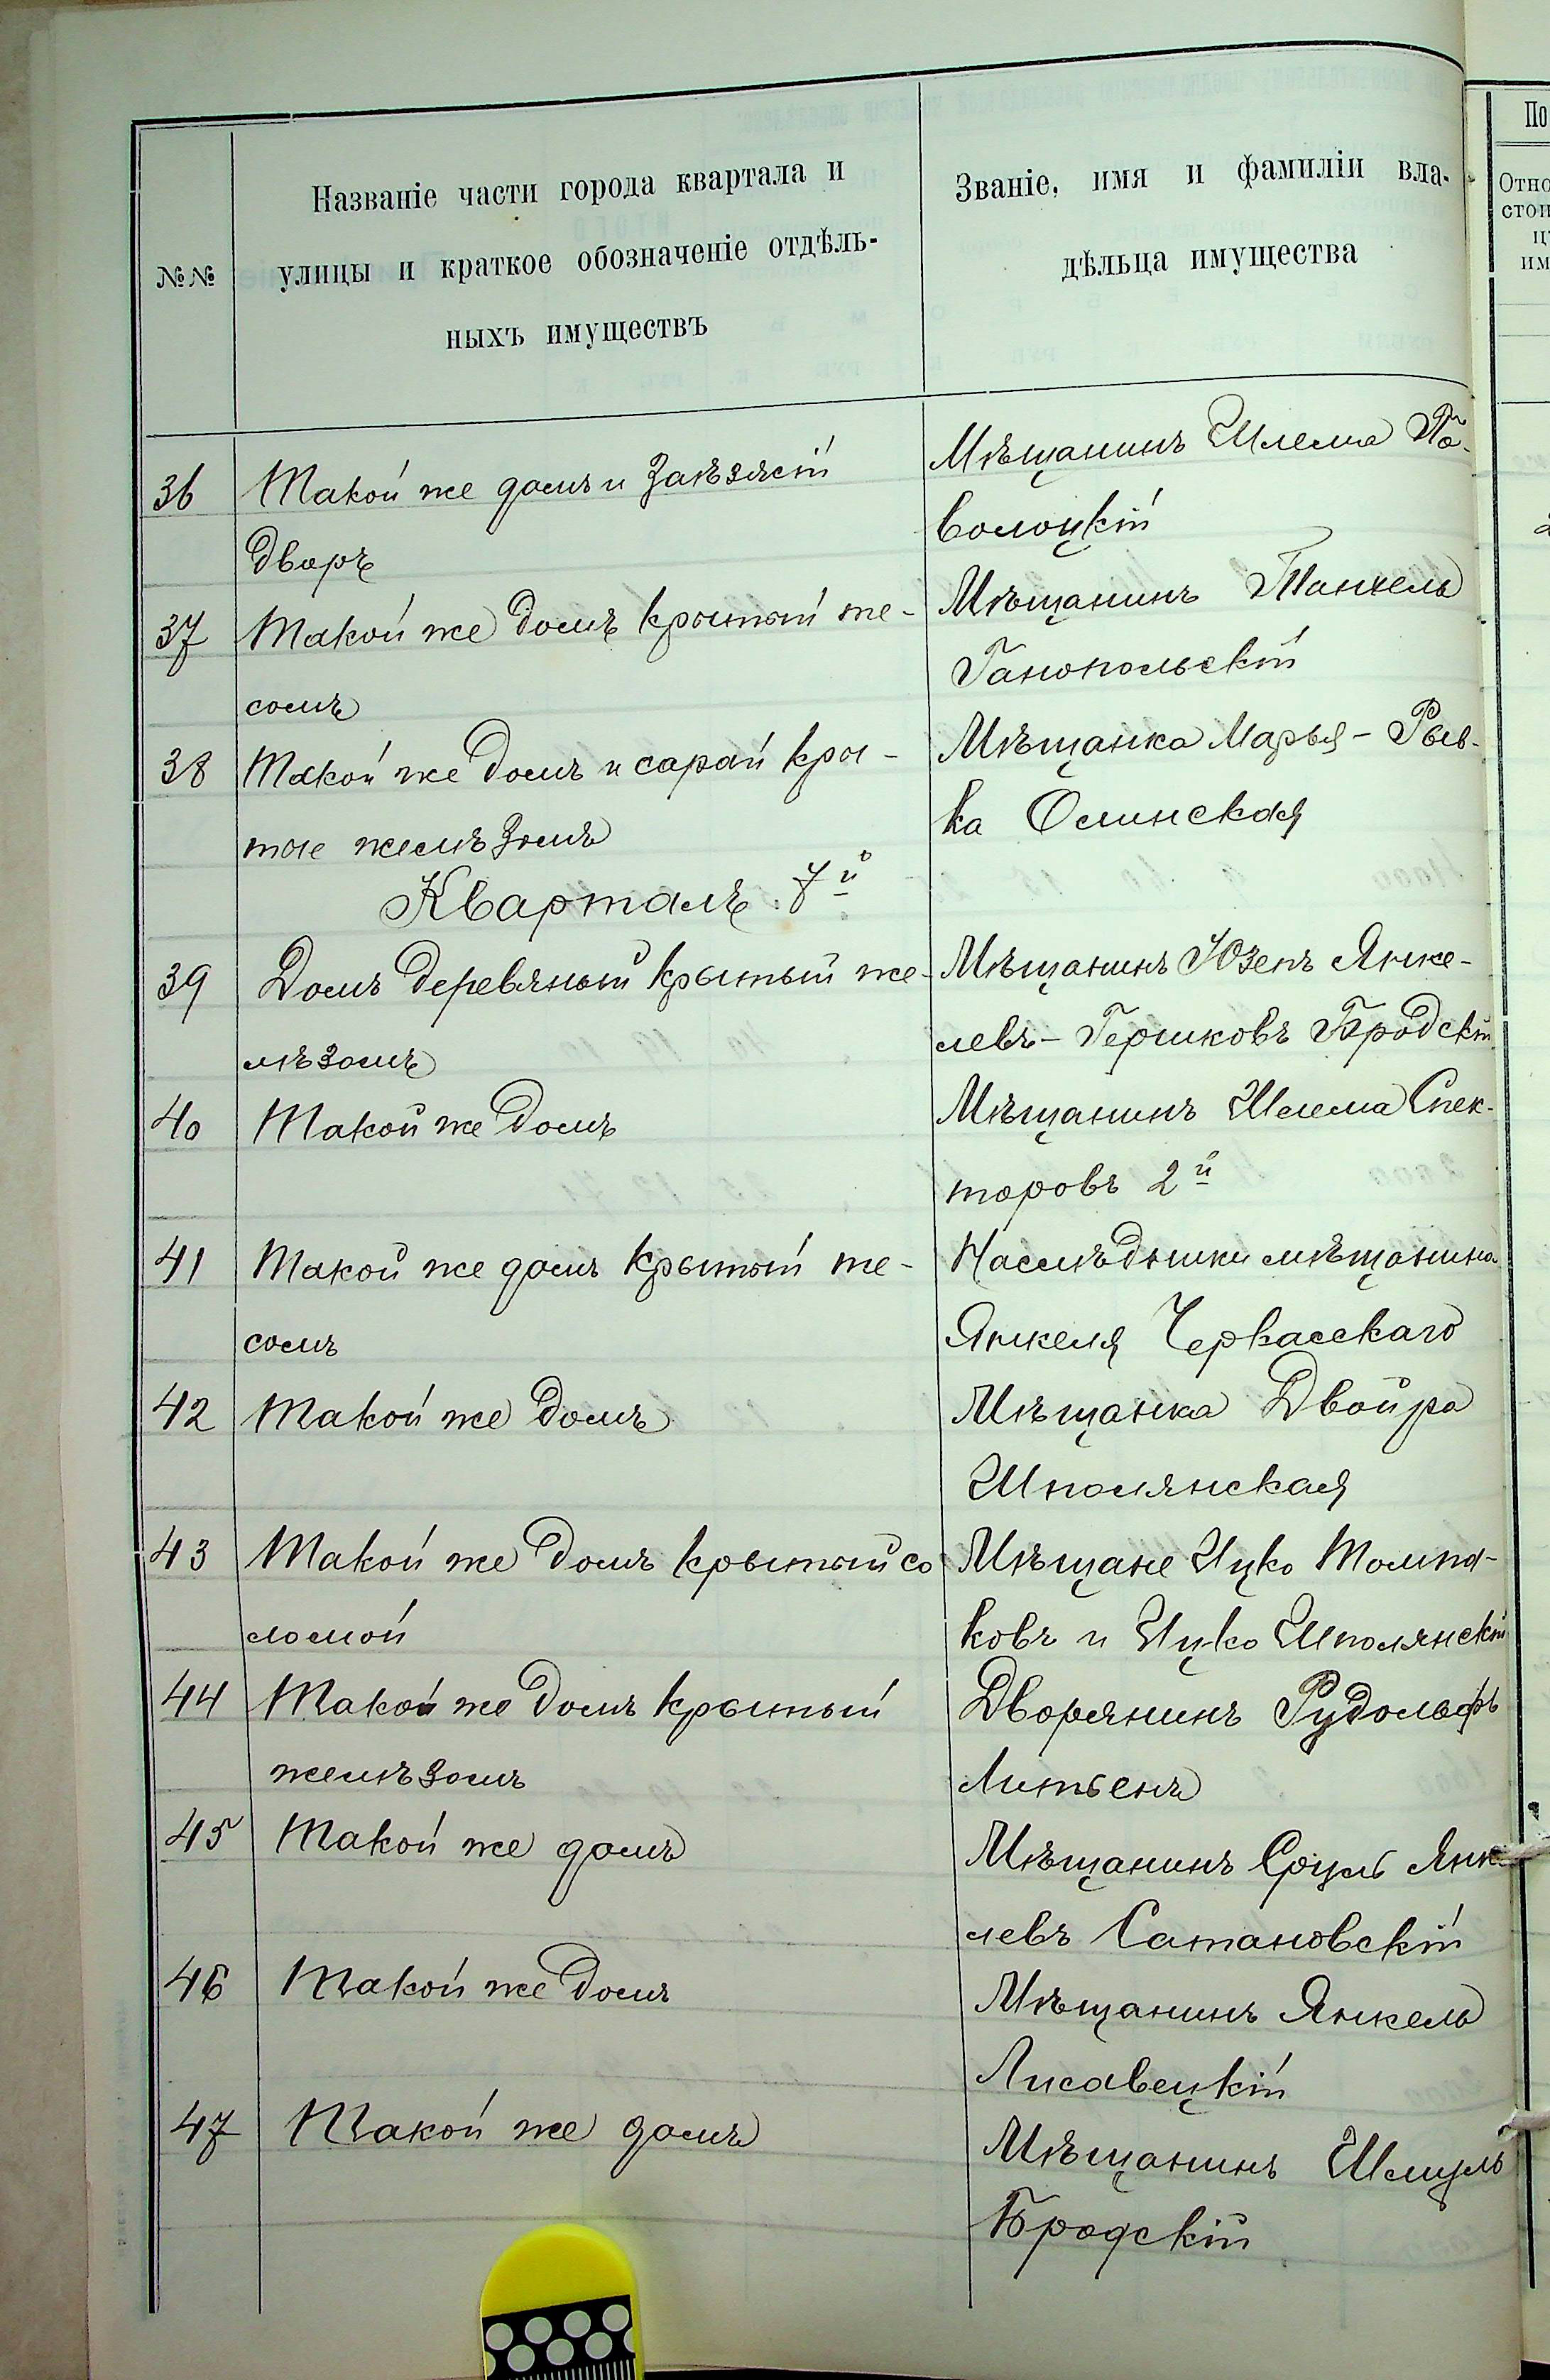 №№
Названіе части города квартала и
улицы и краткое обозначеніе отдѣль-
ныхъ имуществъ
Званіе, имя и фамиліи вла-
дѣльца имущества
36 Такой же домъ и Заѣзжій
дворъ
Мѣщанинъ Шлема По-
волоцкій
37 Такой же домъ крытый те-
сомъ
Мѣщанинъ Танхель
Ганопольскій
38 Такой же домъ и сарай кры-
тые желѣзомъ
Мѣщанка Марья-Рыв-
ка Осинская
Кварталъ 7й
39 Домъ деревяный крытый же-
лѣзомъ
Мѣщанинъ Юзепъ Янке-
левъ-Гершковъ Бродскій
40 Такой же домъ
Мѣщанинъ Шлема Спек-
торовъ 2й
41 Такой же домъ крытый те-
сомъ
Наслѣдники мѣщанина
Янкеля Черкасскаго
42 Такой же домъ
Мѣщанка Двойра
Шполянская
43 Такой же домъ крытый со
ломой
Мѣщане Ицко Толпа-
ковъ и Ицко Шполянскій
44 Такой же домъ крытый
желѣзомъ
Дворянинъ Рудольфъ
45 Такой же домъ
Мѣщанинъ Сруль Янке
левъ Сатановскій
46 Такой же домъ
Мѣщанинъ Янкель
Лисавецкій
47 Такой же домъ
Мѣщанинъ Шмуль
Бродскій
По
Отно
стои
им